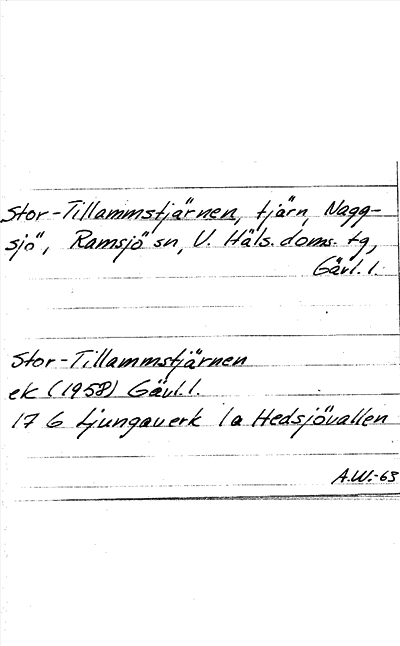 Stor-Tillammstjärnen, tjärn, Nagg-
sjö, Ramsjö sn, V. Häls. doms. tg,
Gävl. l.
Stor-Tillammstjärnen
ek (1958) Gävl. l.
17 G Ljungaverk 1a Hedsjövallen
A.W.-63